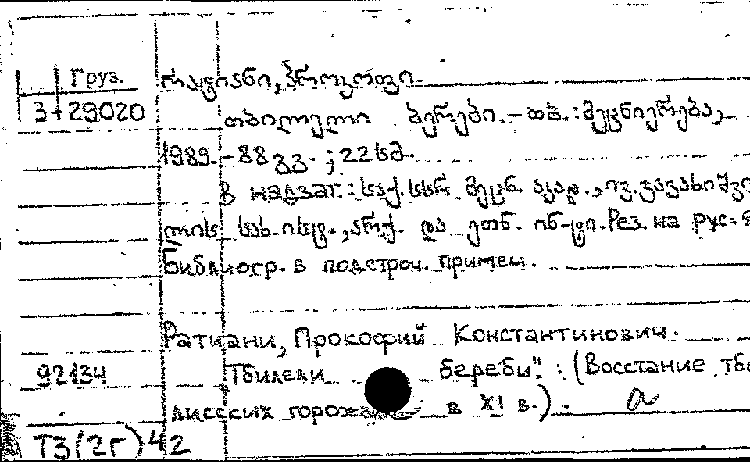 Груз.
3-29020
რატიანი, პროკოფი.
თბილელი ბერები. - თბ.: მეცნიერება,
1989. - 88 გვ. ; 22 სმ.
В надзаг.: საქ. სსრ მეცნ. აკად., ივ. ჯავახიშვი
ლის სახ. ისტ., არქ. და ეთნ. ინ-ტი. Рез. на рус. я
Библиогр. в подстроч. примеч.
Ратиани, Прокофий Константинович.
92134
"Тбилели береби" : (Восстание тби
лисских горожа в XI в.).
Т3(2Г)42